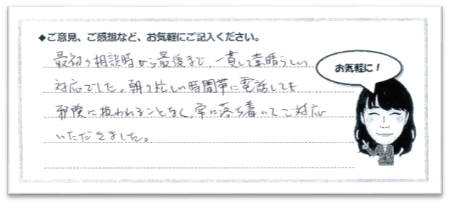 ◆ご意見、ご感想など、お気軽にご記入ください。
最初の相談時から最後まで、一貫して素晴らしい
対応でした。朝の忙しい時間帯に電話しても
邪険に扱われることなく、常に落ち着いてご対応
いただきました。
お気軽に!